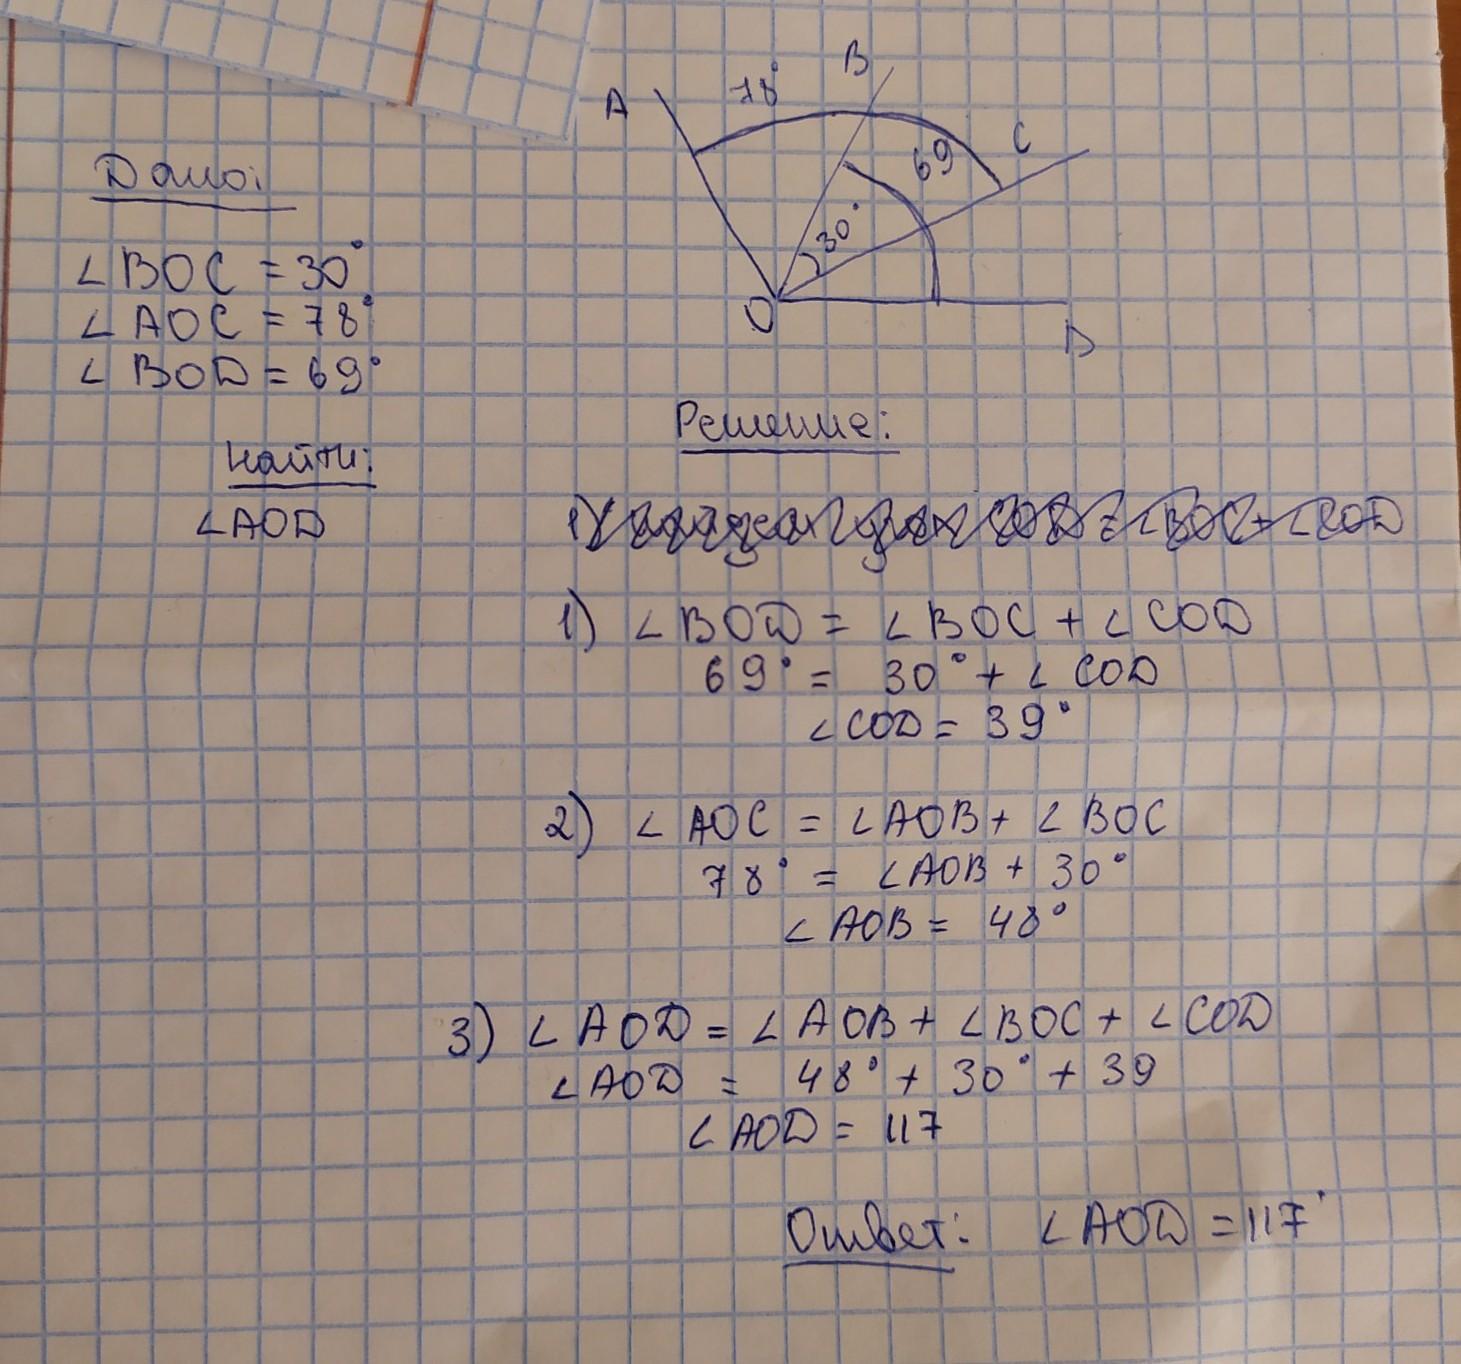 A
78°
B
69
C
30°
O
D
Дано:
∠BOC = 30°
∠AOC = 78°
∠BOD = 69°
Найти:
∠AOD
Решение:
1) = ∠BOC + ∠COD
1) ∠BOD = ∠BOC + ∠COD
69° = 30° + ∠COD
∠COD = 39°
2) ∠AOC = ∠AOB + ∠BOC
78° = ∠AOB + 30°
∠AOB = 48°
3) ∠AOD = ∠AOB + ∠BOC + ∠COD
∠AOD = 48° + 30° + 39
∠AOD = 117
Ответ: ∠AOD = 117°